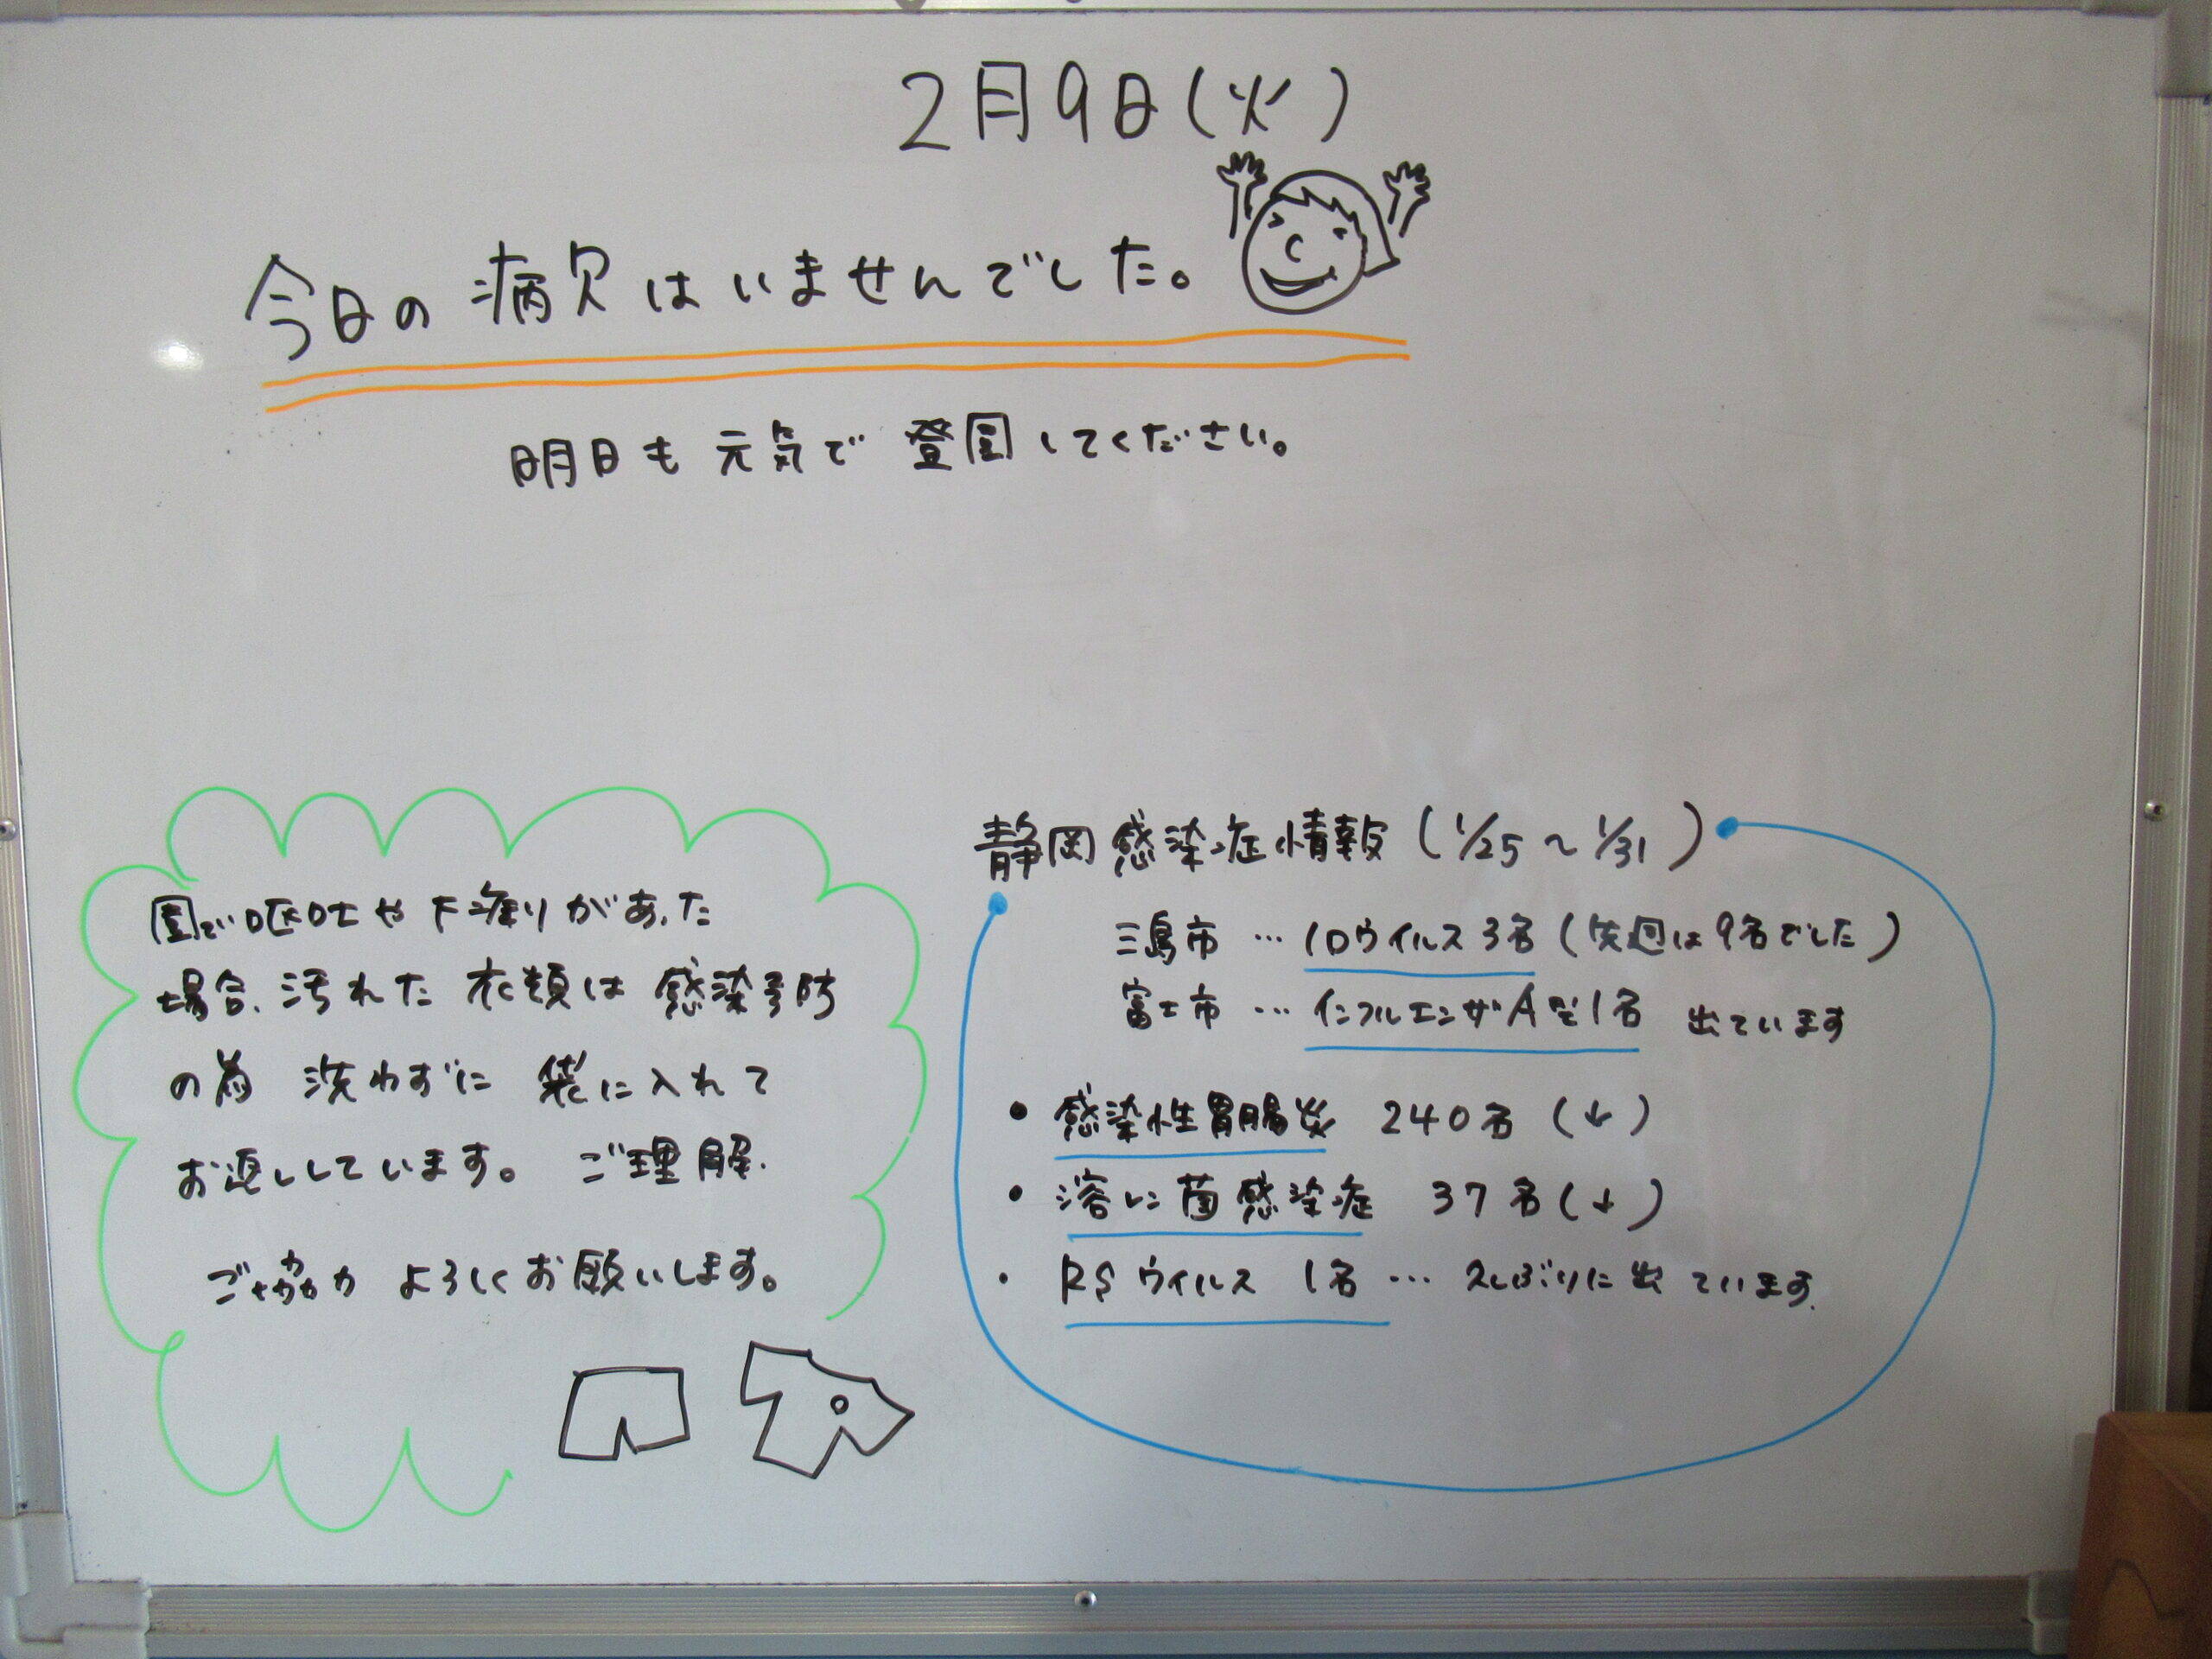 2月9日(火)
今日の病欠はいませんでした。
明日も元気で登園してください。
園で嘔吐や下痢りがあった
場合、汚れた衣類は感染予防
の為 洗わずに袋に入れて
お返ししています。ご理解.
ご協力よろしくお願いします。
静岡感染症情報(1/25～1/31)
三島市 … 1ロウイルス3名(先週は9名でした)
富士市 … インフルエンザA型1名 出ています
• 感染性胃腸炎 240名(↓)
• 溶レン菌感染症 37名(↓)
• RSウイルス 1名 … 久しぶりに出ています.